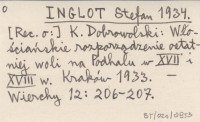 INGLOT Stefan 1934.
[Rec. o:] K. Dobrowolski: Wło-
ściańskie rozporządzenie ostat-
niej woli na Podhalu w XVII i
XVIII w. Kraków 1933. —
Wierchy 12: 206-207.